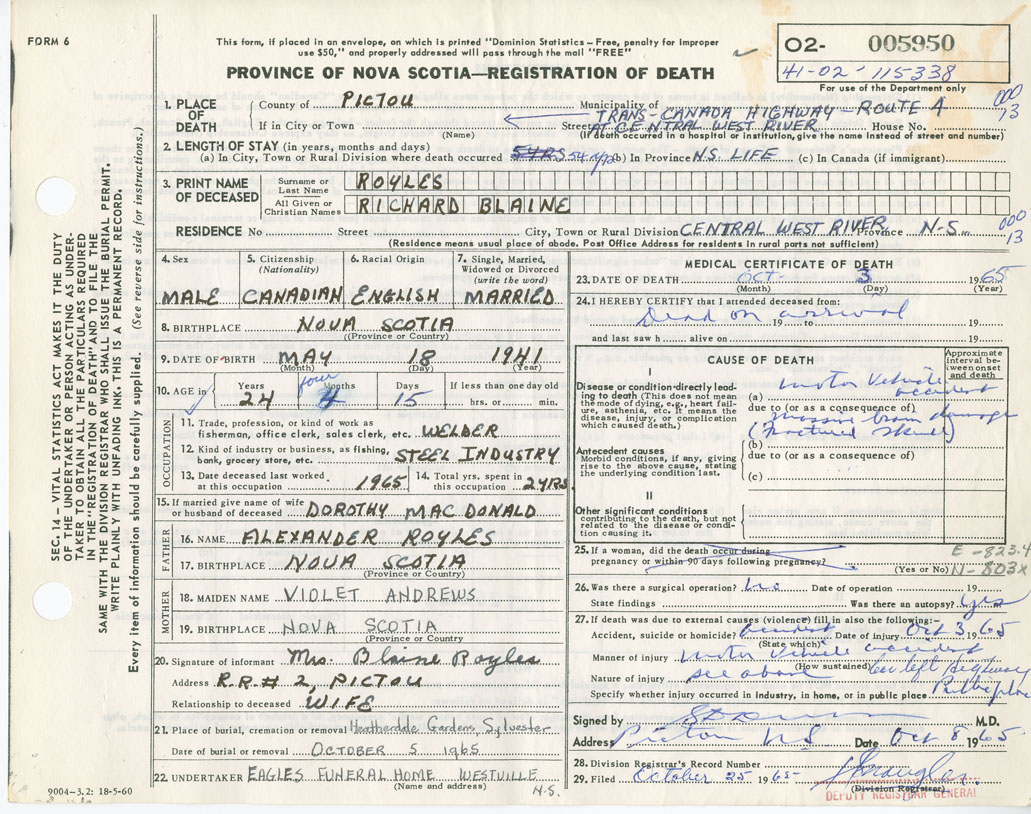 FORM 6
This form, if placed in an envelope, on which is printed "Dominion Statistics – Free, penalty for improper
use $50," and properly addressed will pass through the mail "FREE"
PROVINCE OF NOVA SCOTIA—REGISTRATION OF DEATH
O2- 005950
41-02-115338
For use of the Department only
000
13
1. PLACE OF DEATH
County of PICTOU
Municipality of
TRANS-CANADA HIGHWAY - ROUTE 4
If in City or Town (Name) Street House No.
AT CENTRAL WEST RIVER
(If a death in hospital or institution, give the name instead of street and number)
2. LENGTH OF STAY (in years, months and days)
(a) In City, Town or Rural Division where death occurred 5 YRS (b) In Province N.S. LIFE (c) In Canada (if immigrant)
3. PRINT NAME OF DECEASED
Surname or Last Name ROYLES
All Given or Christian Names RICHARD BLAINE
RESIDENCE No Street City, Town or Rural Division CENTRAL WEST RIVER Province N-S.
000
13
(Residence means usual place of abode. Post Office Address for residents in rural parts not sufficient)
4. Sex
MALE
5. Citizenship (Nationality)
CANADIAN
6. Racial Origin
ENGLISH
7. Single, Married, Widowed or Divorced (write the word)
MARRIED
8. BIRTHPLACE NOVA SCOTIA
(Province or Country)
9. DATE OF BIRTH MAY 18 1941
(Month) (Day) (Year)
10. AGE in Years Months Days If less than one day old
four
24 4 15 hrs. or min.
OCCUPATION
11. Trade, profession or kind of work as
fisherman, office clerk, sales clerk, etc. WELDER
12. Kind of industry or business, as fishing,
bank, grocery store, etc. STEEL INDUSTRY
13. Date deceased last worked at this occupation 1965
14. Total yrs. spent in this occupation 2 YRS.
15. If married give name of wife
or husband of deceased DOROTHY MAC DONALD
FATHER
16. NAME ALEXANDER ROYLES
17. BIRTHPLACE NOVA SCOTIA
(Province or Country)
MOTHER
18. MAIDEN NAME VIOLET ANDREWS
19. BIRTHPLACE NOVA SCOTIA
(Province or Country)
20. Signature of informant Mrs. Blaine Royles
Address R.R.# 2, PICTOU
Relationship to deceased WIFE
21. Place of burial, cremation or removal Heatherdale Gardens Sylvester
Date of burial or removal OCTOBER 5 1965
22. UNDERTAKER EAGLES FUNERAL HOME WESTVILLE
(Name and address)
N.S.
9004—3.2: 18-5-60
MEDICAL CERTIFICATE OF DEATH
23. DATE OF DEATH Oct 3 1965
(Month) (Day) (Year)
24. I HEREBY CERTIFY that I attended deceased from:
Dead on arrival
19 to 19
and last saw h alive on 19
CAUSE OF DEATH
Approximate interval between onset and death
I
Disease or condition directly leading to death (This does not mean the mode of dying, e.g., heart failure, asthenia, etc. It means the disease, injury, or complication which caused death.)
(a) Motor Vehicle accident
due to (or as a consequence of)
Massive brain damage
(b) (Fractured Skull)
Antecedent causes
Morbid conditions, if any, giving rise to the above cause, stating the underlying condition last.
due to (or as a consequence of)
(c)
II
Other significant conditions
contributing to the death, but not related to the disease or condition causing it.
25. If a woman, did the death occur during
pregnancy or within 90 days following pregnancy?
(Yes or No)
E -823.4
N- 803x
26. Was there a surgical operation? no Date of operation 19
State findings Was there an autopsy? yes
27. If death was due to external causes (violence) fill in also the following:—
Accident, suicide or homicide? accident Date of injury Oct 3 1965
(State which)
Manner of injury Motor Vehicle accident
(How sustained) Car left highway
Nature of injury see above
Specify whether injury occurred in industry, in home, or in public place Public place
Signed by M.D.
Address Pictou N.S Date Oct 8 1965
28. Division Registrar's Record Number
29. Filed October 25 1965
(Division Registrar)
DEPUTY REGISTRAR GENERAL
SEC. 14 – VITAL STATISTICS ACT MAKES IT THE DUTY
OF THE UNDERTAKER OR PERSON ACTING AS UNDER-
TAKER TO OBTAIN ALL THE PARTICULARS REQUIRED
IN THE "REGISTRATION OF DEATH" AND TO FILE THE
SAME WITH THE DIVISION REGISTRAR WHO SHALL ISSUE THE BURIAL PERMIT.
WRITE PLAINLY WITH UNFADING INK. THIS IS A PERMANENT RECORD.
Every item of information should be carefully supplied. (See reverse side for instructions.)